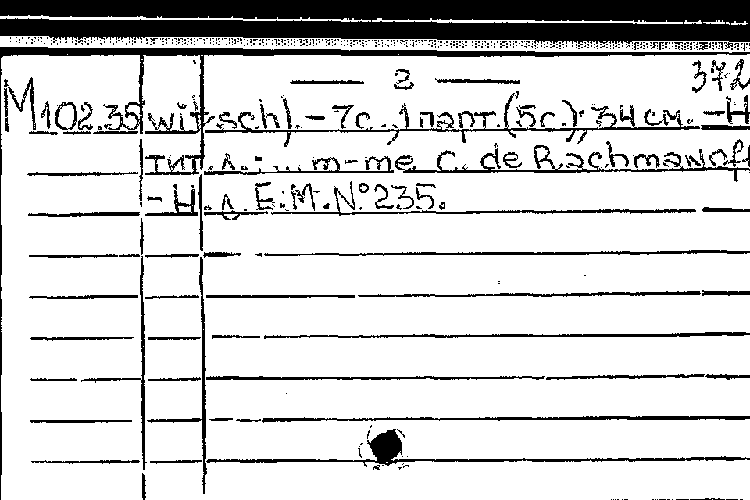 — 2 — 372
M102.35 witsch). – 7с., 1 парт. (5с.); 34 см. – Н
тит. л.: ... m-me C. de Rachmanoff
– Н. д. Е.М. N°235.